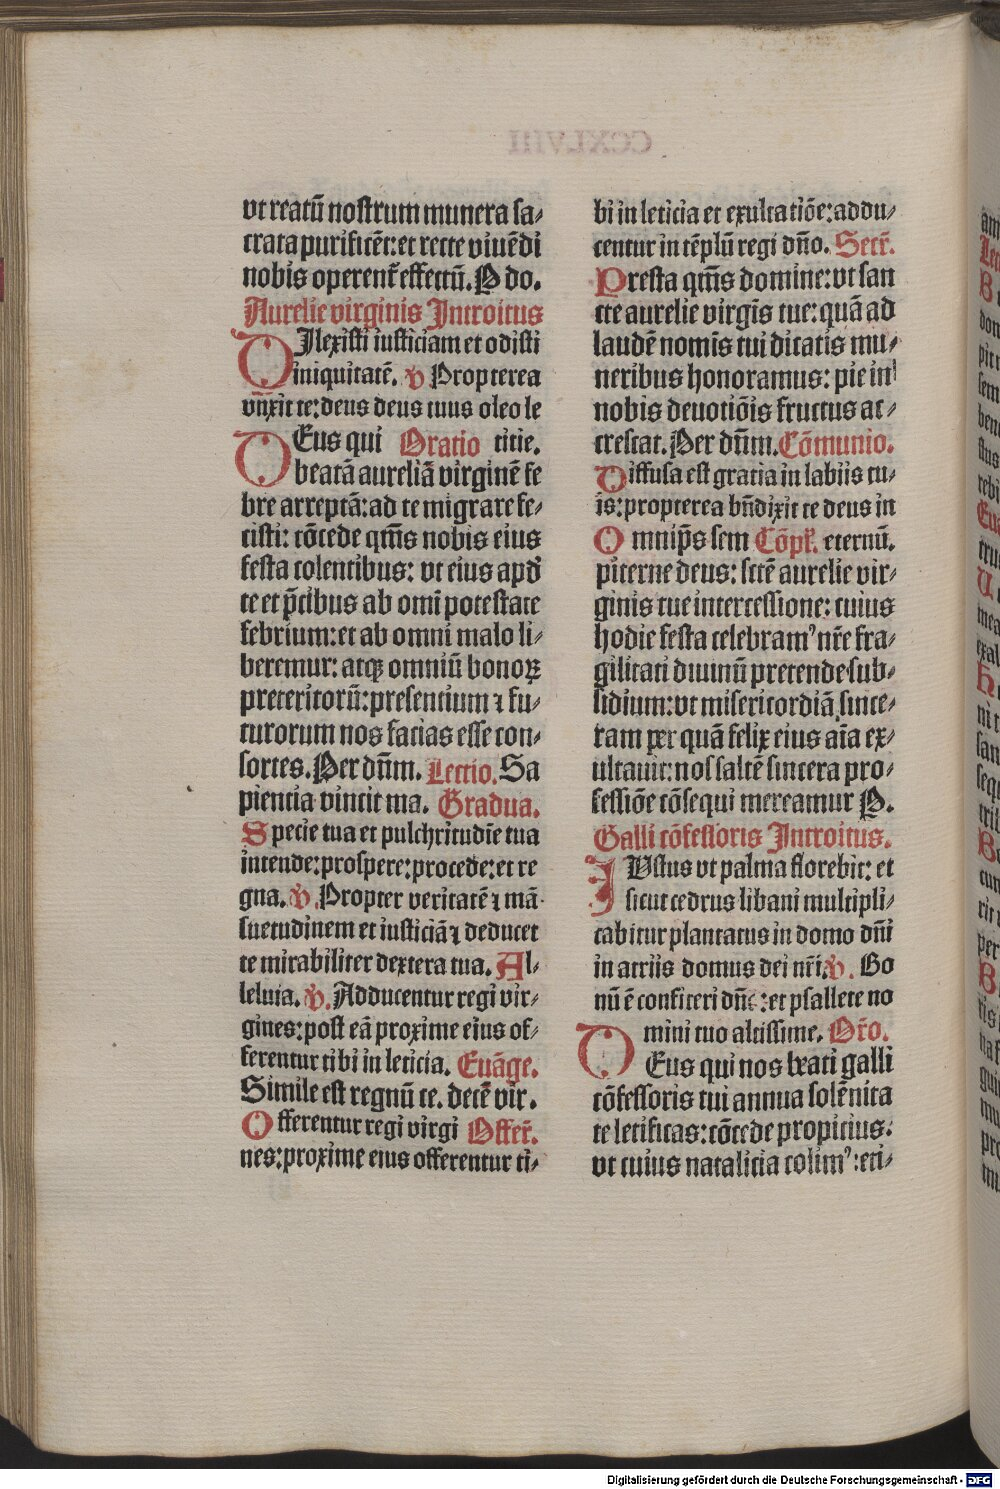 vt reatū nostrum munera sa⸗
crata purificēt: et recte viuēdi
nobis operent̄ effectū. P do.
Aurelie virginis Introitus
DIlexisti iusticiam et odisti
iniquitatē. v Propterea
vnxit te: deus deus tuus oleo le
DEus qui Oratio ticie.
beatā aureliā virginē fe
bre arreptā: ad te migrare fe⸗
cisti: cōcede qm̄s nobis eius
festa colentibus: vt eius apd̄
te et p̄cibus ab omī potestate
febrium: et ab omni malo li⸗
beremur: atqꝫ omniū bonoꝝ
preteritorū: presentium ⁊ fu⸗
turorum nos facias esse con⸗
sortes. Per dn̄m. Lectio. Sa
pientia vincit ma. Gradua.
Specie tua et pulchritudīe tua
intende: prospere: procede: et re
gna. v. Propter veritatē ⁊ mā
suetudinem et iusticiā ⁊ deducet
te mirabiliter dextera tua. Al⸗
leluia. v. Adducentur regi vir⸗
gines: post eā proxime eius of⸗
ferentur tibi in leticia. Euāge.
Simile est regnū ce. decē vir.
Offerentur regi virgi Offer̄.
nes: proxime eius offerentur ti⸗
bi in leticia et exultatiōe: addu⸗
centur in tēplū regi dn̄o. Secr̄.
Presta qm̄s domine: vt san
cte aurelie virgīs tue: quā ad
laudē nomīs tui dicatis mu⸗
neribus honoramus: pie in
nobis deuotiōis fructus ac⸗
crescat. Per dn̄m. Cōmunio.
Diffusa est gratia in labiis tu⸗
is: propterea bn̄dixit te deus in
Omnip̄s sem Cōpl̄. eternū.
piterne deus: sctē aurelie vir⸗
ginis tue intercessione: cuius
hodie festa celebramꝰ nr̄e fra⸗
gilitati diuinū pretende sub⸗
sidium: vt misericordiā, since⸗
ram per quā felix eius aīa ex⸗
ultauit: nos saltē sincera pro⸗
fessiōe cōsequi mereamur P.
Galli cōfessoris Introitus.
IUstus vt palma florebit: et
sicut cedrus libani multipli⸗
cabitur plantatus in domo dn̄i
in atriis domus dei nr̄i. v. Bo
nū ē confiteri dn̄o: et psallere no
mini tuo altissime. Or̄o.
DEus qui nos beati galli
cōfessoris tui annua solēnita
te letificas: cōcede propicius:
vt cuius natalicia colimꝰ: eti⸗
Digitalisierung gefördert durch die Deutsche Forschungsgemeinschaft - DFG